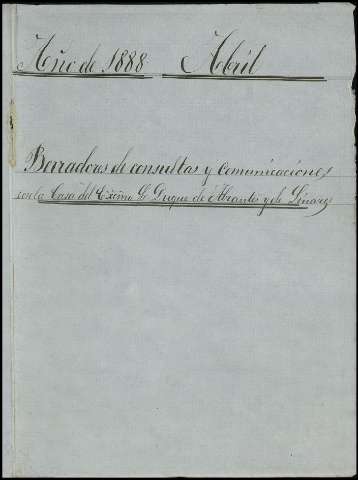 Año de 1888 Abril
Borradores de consultas y comunicaciones
con la Casa del Exčmo Sr Duque de Abrantes y de Linares